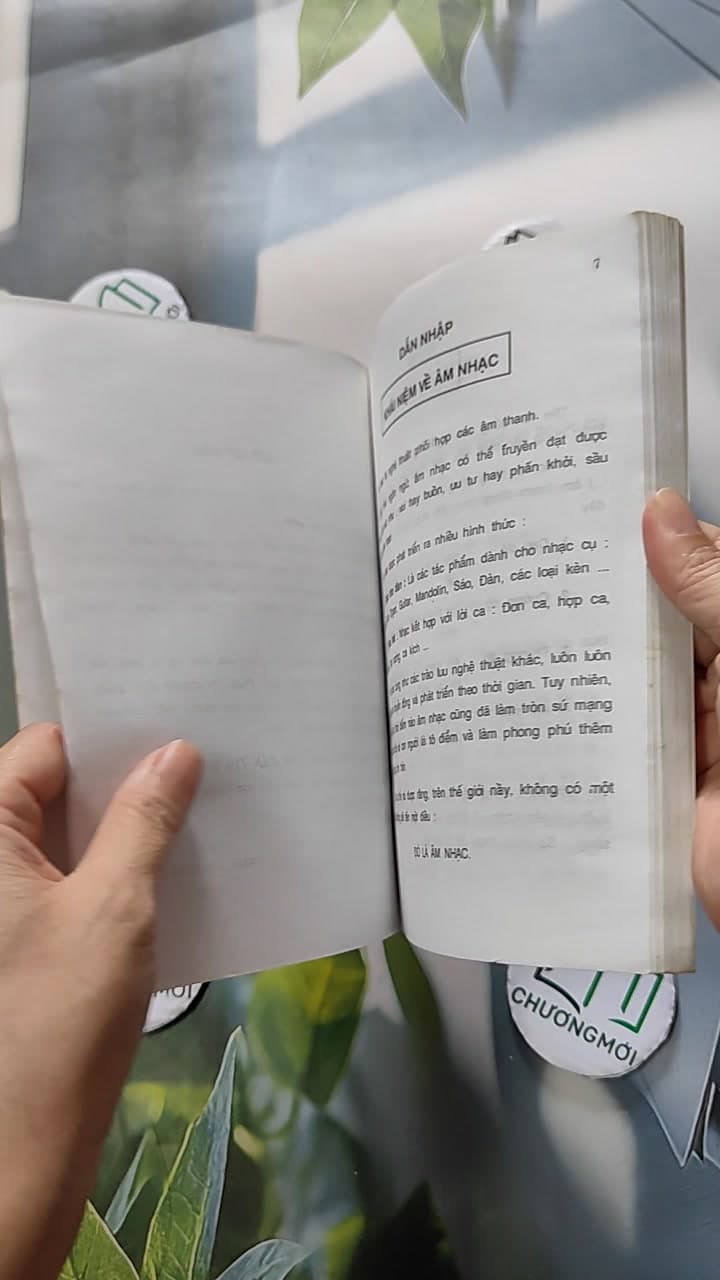 7
DẪN NHẬP
KHÁI NIỆM VỀ ÂM NHẠC
nghệ thuật phối hợp các âm thanh.
ngôn ngữ, âm nhạc có thể truyền đạt được
vui hay buồn, ưu tư hay phấn khởi, sầu
phát triển ra nhiều hình thức :
đàn : Là các tác phẩm dành cho nhạc cụ :
Organ, Guitar, Mandolin, Sáo, Đàn, các loại kèn ...
Nhạc kết hợp với lời ca : Đơn ca, hợp ca,
ca kịch ...
như các trào lưu nghệ thuật khác, luôn luôn
và phát triển theo thời gian. Tuy nhiên,
nào âm nhạc cũng đã làm tròn sứ mạng
con người là tô điểm và làm phong phú thêm
được rằng, trên thế giới nầy, không có một
ĐÓ LÀ ÂM NHẠC.
CHƯƠNGMỚI